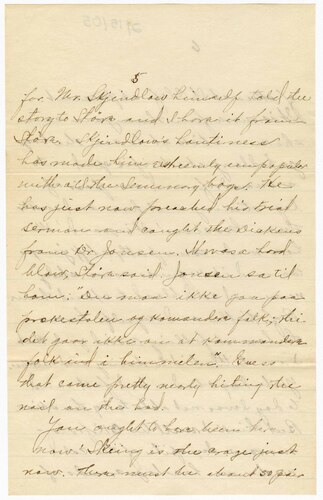 5
for Mr. Skjindlow himself told the
story to Stork and I have it from
Stork. Skjindlow's hautiness
has made him extremely unpopular
with all the Seminary boys. He
has just now preached his trial
sermon and caught the Diakens
from Dr Jonsen. It was a hard
blow, Stork said. Jonsen sa til
ham: "Du maa ikke gaa paa
prekestolen og komandere folk; thi
det gaar ikke an at kommandere
folk ind i himmelen". Guess
that came pretty nearly hiting the
nail on the head.
You ought to have been here
now! Skiing is the rage just
now. There must be about 50 pair